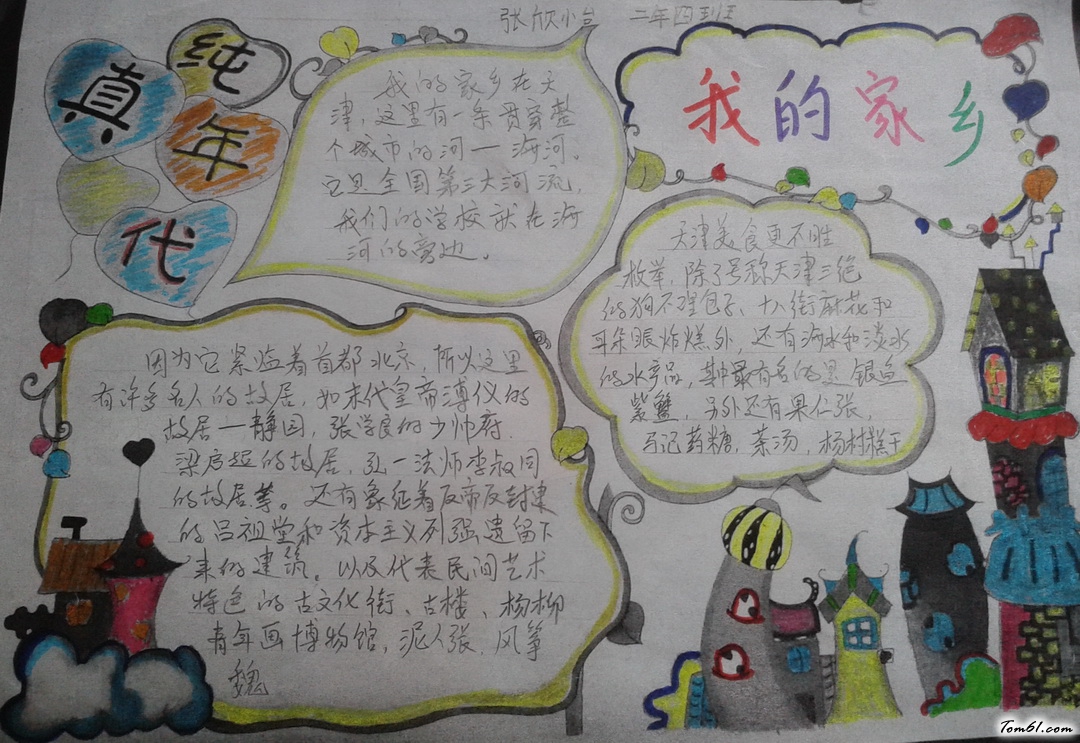 张欣小台 二年四班
纯
真
年
代
我的家乡
我的家乡在天
津，这里有一条贯穿整
个城市的河一海河。
它是全国第三大河流，
我们的学校就在海
河的旁边。
天津美食更不胜
枚举，除了号称天津三绝
的狗不理包子、十八街麻花和
耳朵眼炸糕外，还有海水和淡水
的水产品，其中最有名的是银鱼
紫蟹，另外还有果仁张，
马记药糖，茶汤，杨村糕干
因为它紧临着首都北京，所以这里
有许多名人的故居，如末代皇帝溥仪的
故居一静园，张学良的少帅府，
梁启超的故居，弘一法师李叔同
的故居等。还有象征着反帝反封建
的吕祖堂和资本主义列强遗留下
来的建筑。以及代表民间艺术
特色的古文化街、古楼、杨柳
青年画博物馆，泥人张，风筝
魏
Tom61.com